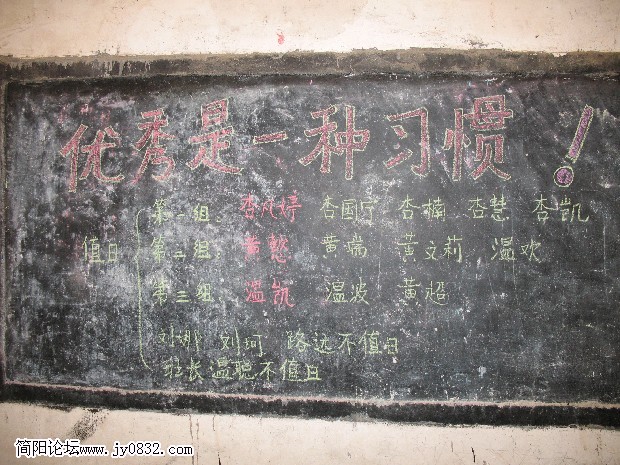 优秀是一种习惯!
第一组 杏凤婷 杏国宁 杏楠 杏慧 杏凯
值日 第二组 黄懿 黄瑞 黄文莉 温欢
第三组 温凯 温波 黄超
刘娜 刘珂 路远不值日
班长温聪不值日
简阳论坛www.jy0832.com